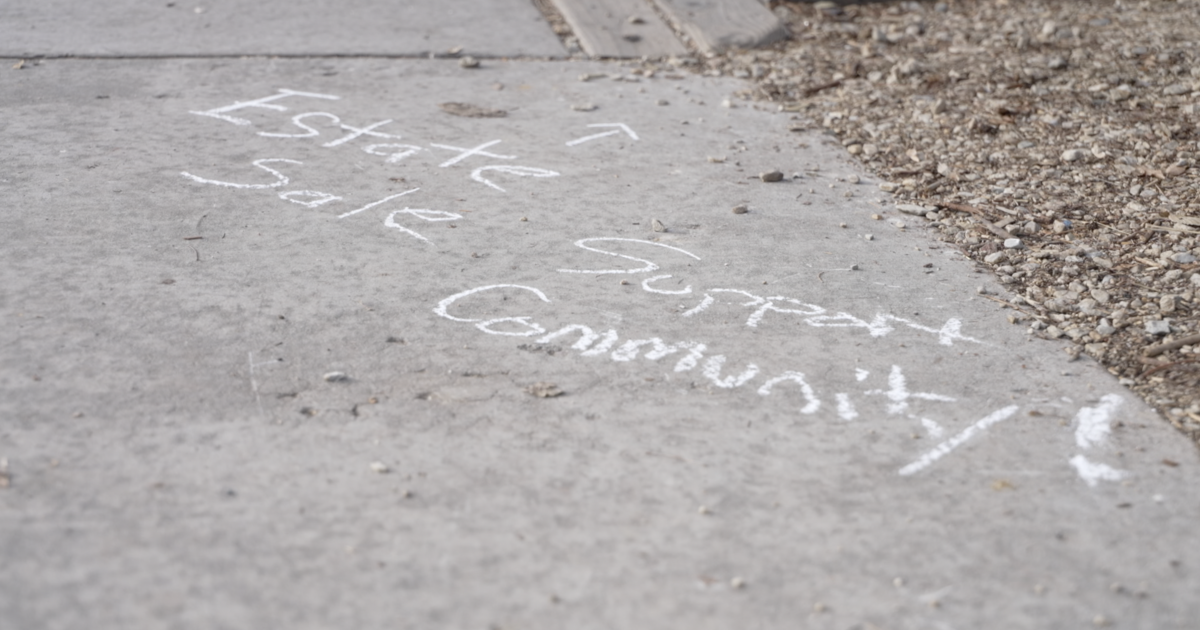 Estate
Sale
Support
Community!